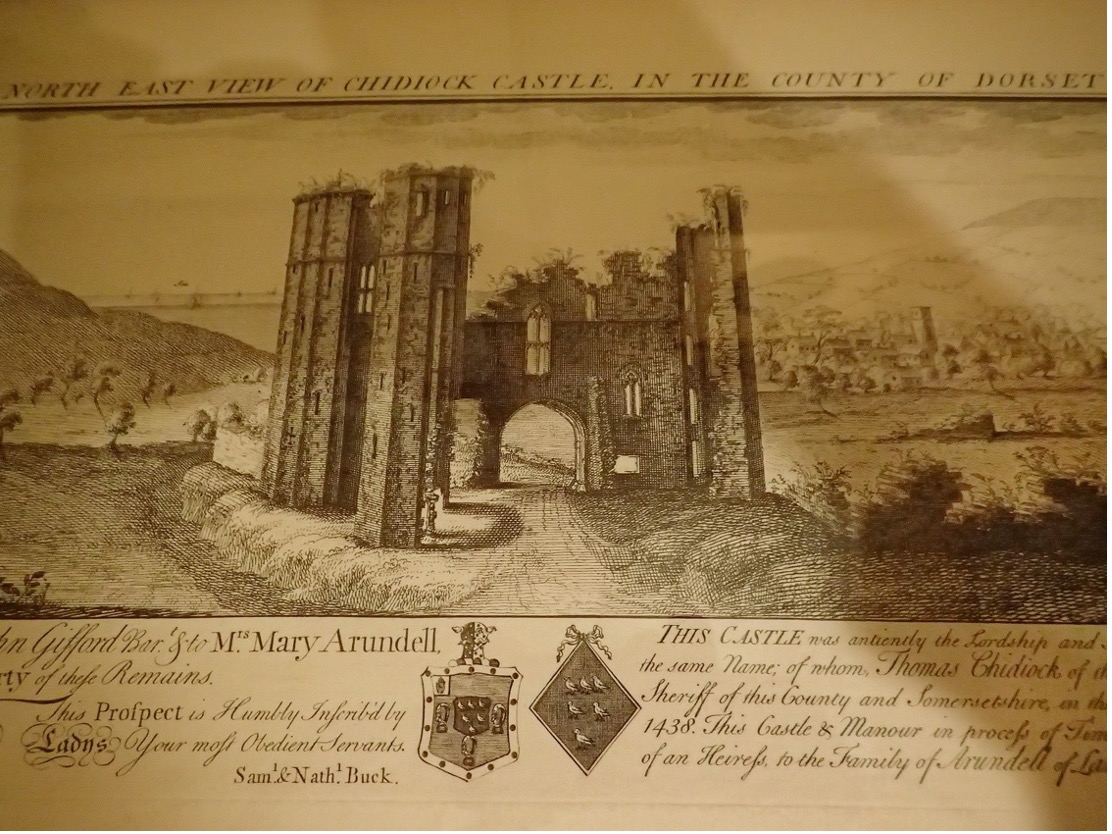 NORTH EAST VIEW OF CHIDIOCK CASTLE, IN THE COUNTY OF DORSET
Gifford Bar.t & to Mrs Mary Arundell,
of these Remains.
This Prospect is Humbly Inscrib'd by
Ladys Your most Obedient Servants.
Sam.l & Nath.l Buck.
THIS CASTLE was antiently the Lordship and
the same Name; of whom, Thomas Chidiock of
Sheriff of this County and Somersetshire, in
1438. This Castle & Manour in process of
of an Heiress, to the Family of Arundell of